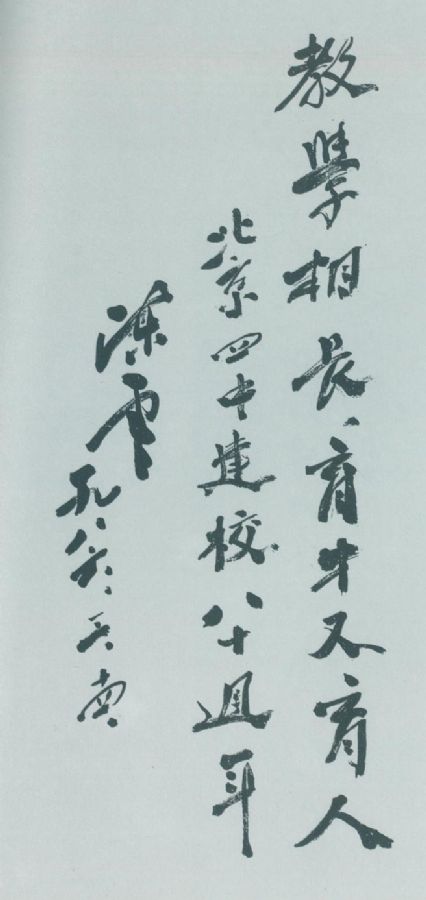 教學相長、育才又育人
北京四中建校八十週年
陳雲